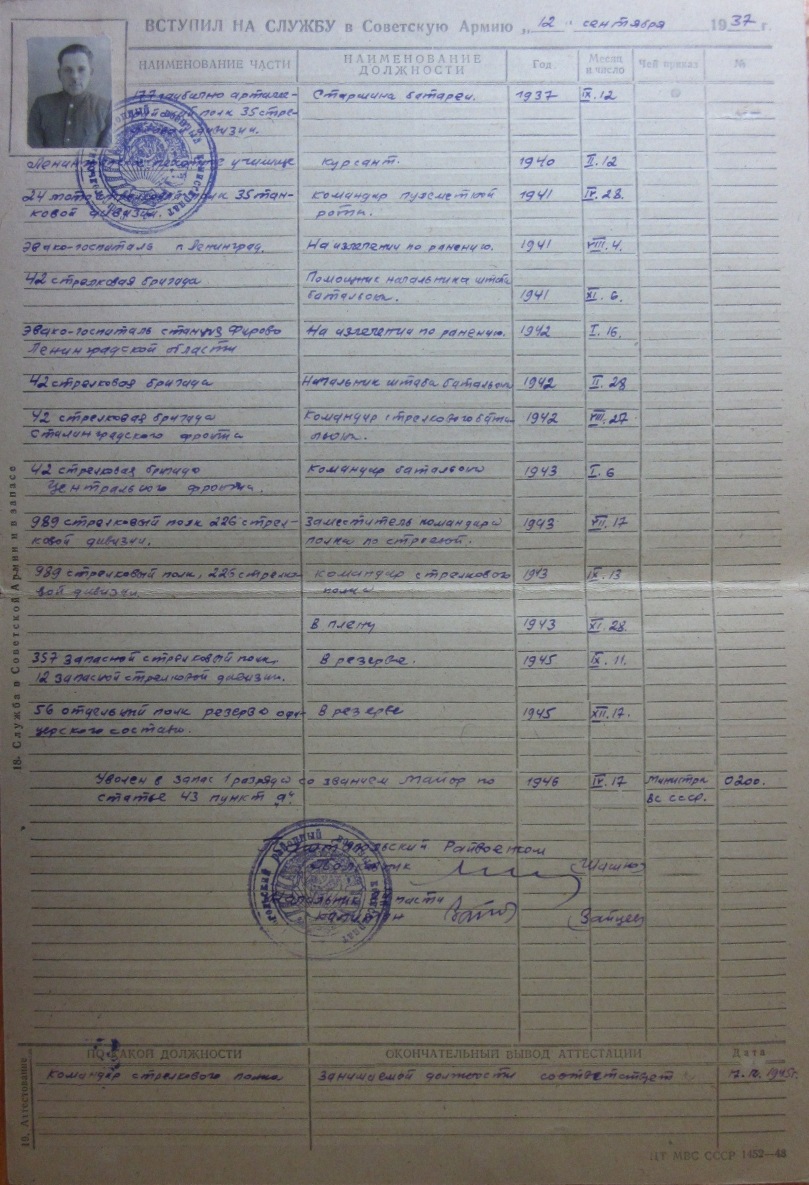 ВСТУПИЛ НА СЛУЖБУ в Советскую Армию „12“ сентября 1937 г.
НАИМЕНОВАНИЕ ЧАСТИ НАИМЕНОВАНИЕ ДОЛЖНОСТИ Год Месяц и число Чей приказ №
177 гаубично артилле- Старшина батареи. 1937 IX.12
полк 35 стре-
дивизии.
училище курсант. 1940 II.12
24 мото полк 35 тан- командир пулеметной 1941 IV.28.
ковой дивизии. роты.
Эвако-госпиталь г. Ленинград. На излечении по ранению. 1941 VIII.4.
42 стрелковая бригада Помощник начальника штаба
батальона. 1941 XI.6.
Эвако-госпиталь станция Фирово На излечении по ранению. 1942 I.16.
Ленинградской области
42 стрелковая бригада Начальник штаба батальона 1942 II.28
42 стрелковая бригада Командир стрелкового бата- 1942 VIII.27
Сталинградского фронта льона.
42 стрелковая бригада Командир батальона 1943 I.6
Центрального фронта.
989 стрелковый полк 226 стрел- Заместитель командира 1943 VII.17
ковой дивизии. полка по строевой.
989 стрелковый полк, 226 стрелко- командир стрелкового 1943 IX.13
вой дивизии. полка
В плену 1943 XI.28.
357 запасной стрелковый полк, В резерве. 1945 IX.11.
12 запасной стрелковой дивизии.
56 отдельный полк резерва офи- В резерве 1945 XII.17.
церского состава.
Уволен в запас 1 разряда со званием Майор по 1946 IV.17 Министра 0200.
статье 43 пункт „а“ ВС СССР.
Райвоенком
(Шашко)
Начальник части
капитан (Зайцев)
18. Служба в Советской Армии и в запасе
19. Аттестование
ПО КАКОЙ ДОЛЖНОСТИ ОКОНЧАТЕЛЬНЫЙ ВЫВОД АТТЕСТАЦИИ Дата
Командир стрелкового полка Занимаемой должности соответствует 1945г.
ЦТ МВС СССР 1452—48